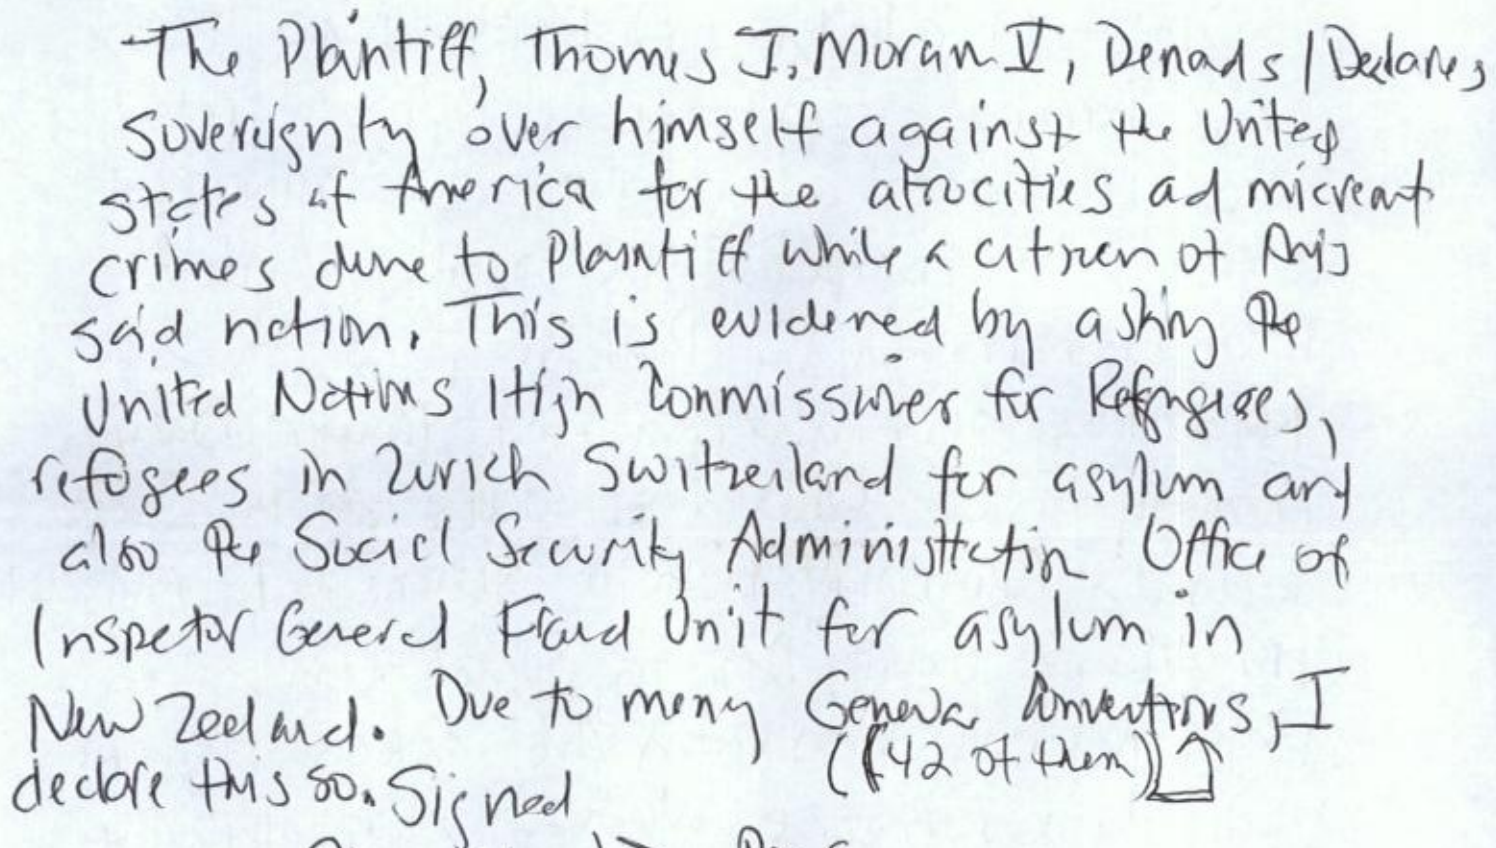 The Plaintiff, Thomas J. Moran V, Demads / Declares
Sovereignty over himself against the United
states of America for the atrocities ad micreant
crimes done to Plaintiff while a citizen of this
said nation. This is evidened by asking the
United Nations High Commissioner for Refugees,
refogees in Zurich Switzerland for asylum and
also the Social Security Administration Office of
Inspetor General Fraud Unit for asylum in
New Zeeland. Due to many Geneva Conventions, I
(42 of them)
declare this so. Signed